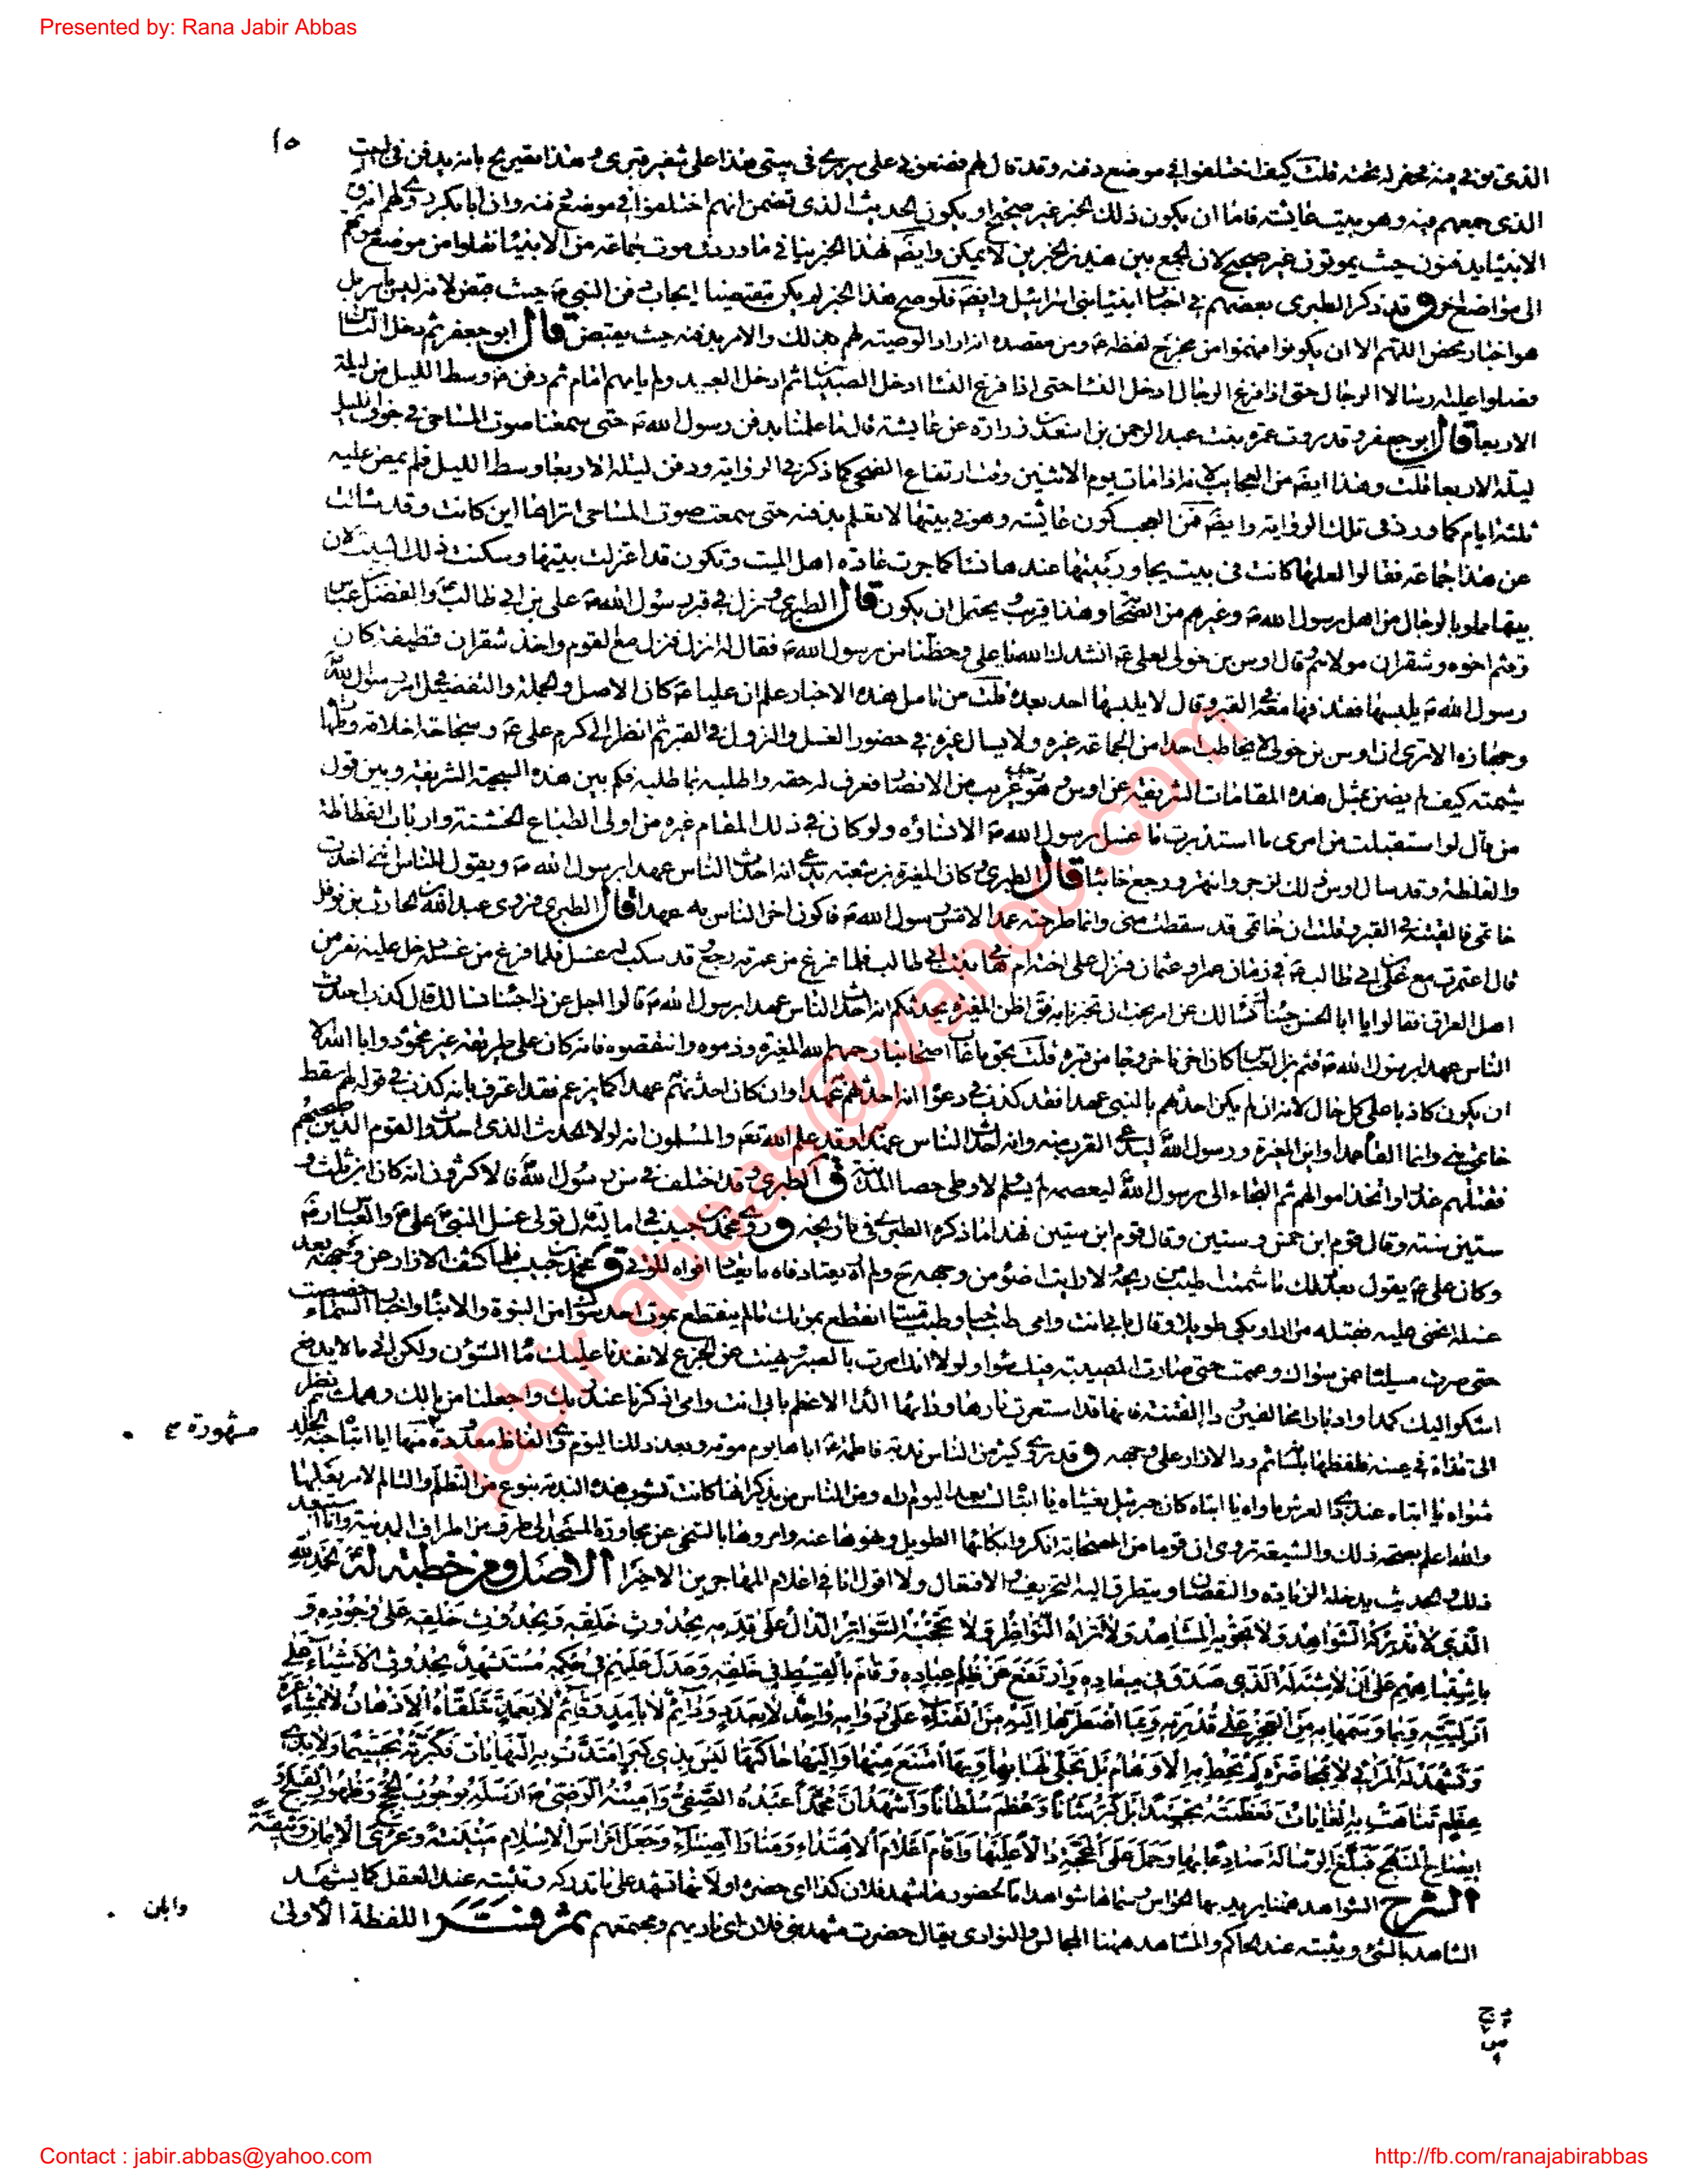 Presented by: Rana Jabir Abbas
١٥
الذي توفي فيه فحفر له تحته قلت كيف اختلفوا في موضع دفنه وقد قال لهم فضعوني على سريري في بيتي هذا على شفير قبري وهذا تصريح بانه يدفن في البيت
الذي جمعهم فيه وهو بيت عايشة فاما ان يكون ذلك الخبر غير صحيح او يكون الحديث الذي تضمن انهم اختلفوا في موضع دفنه وان ابا بكر روى لهم انه قال
الانبياء يدفنون حيث يموتون غير صحيح لان الجمع بين هذين الخبرين لا يمكن وايضا فهذا الخبر ينافي ما ورد في موت جماعة من الانبياء نقلوا من موضع موتهم
الى مواضع اخر وقد ذكر الطبري بعضهم في اخبار انبياء بني اسرائيل وايضا فلو صح هذا الخبر لم يكن مقتضيا ايجاب دفن النبي حيث قبض لانه ليس بامر بل
هو اخبار محض اللهم الا ان يكونوا فهموا من مخرج لفظه ومن مقصده انه اراد الوصية لهم بذلك والامر بدفنه حيث يقبض قال ابو جعفر ثم دخل الناس
فصلوا عليه ارسالا الرجال حتى اذا فرغ الرجال ادخل النساء حتى اذا فرغ النساء ادخل الصبيان ثم ادخل العبيد ولم يؤمهم امام ثم دفن وسط الليل من ليلة
الاربعاء قال ابو جعفر وقد روت عمرة بنت عبد الرحمن بن اسعد بن زرارة عن عايشة قالت ما علمنا بدفن رسول الله حتى سمعنا صوت المساحي في جوف الليل
ليلة الاربعاء قلت وهذا ايضا من العجائب لانه اذا مات يوم الاثنين وقت ارتفاع الضحى كما ذكر في الرواية ودفن ليلة الاربعاء وسط الليل فلم يمض عليه
ثلثة ايام كما ورد في تلك الرواية وايضا فمن العجب كون عايشة وهو في بيتها لا تعلم بدفنه حتى سمعت صوت المساحي اتراها اين كانت وقد سألت
عن هذا جماعة فقالوا لعلها كانت في بيت يجاور بيتها عندها نساء كما جرت عادة اهل الميت وتكون قد اعتزلت بيتها وسكنت ذلك البيت لان
بيتها مملو بالرجال من اهل رسول الله وغيرهم من الصحابة وهذا قريب ويحتمل ان يكون قال الطبري ونزل في قبر رسول الله علي بن ابي طالب والفضل بن عباس
وقثم اخوه وشقران مولاهم وقال اوس بن خولي لعلي انشدك الله يا علي وحظنا من رسول الله فقال له انزل فنزل مع القوم واخذ شقران قطيفة كان
رسول الله يلبسها فقذفها معه في القبر وقال لا يلبسها احد بعده قلت من تأمل هذه الاخبار علم ان عليا كان الاصل والجملة والتفصيل في امر رسول الله
وجهازه الا ترى ان اوس بن خولي لا يخاطب احدا من الجماعة غيره ولا يسأل غيره في حضور الغسل والنزول في القبر ثم انظر الى كرم علي وسجاحة اخلاقه وطهارة
شيمته كيف لم يضن بمثل هذه المقامات الشريفة عن اوس وهو رجل غريب من الانصار فعرف له حقه واطلبه بما طلبه فكم بين هذه السجية الشريفة وبين قول
من قال لو استقبلت من امري ما استدبرت ما غسل رسول الله الا نساؤه ولو كان في ذلك المقام غيره من اولي الطباع الخشنة وارباب الفظاظة
والغلظة وقد سأل اوس ذلك لزجر وانتهر ورجع خائبا قال الطبري وكان المغيرة بن شعبة يدعي انه احدث الناس عهدا برسول الله ويقول للناس انني اخذت
خاتمي فالقيته في القبر وقلت ان خاتمي قد سقط مني وانما طرحته عمدا لامس رسول الله فاكون اخر الناس به عهدا قال الطبري فروى عبد الله بن الحارث بن نوفل
قال اعتمرت مع علي بن ابي طالب في زمان عمر او عثمان فنزل على اخته ام هاني بنت ابي طالب فلما فرغ من عمرته رجع وقد سكب له غسل فلما فرغ من غسله دخل عليه نفر من
اهل العراق فقالوا يا ابا الحسن جئناك نسألك عن امر نحب ان تخبرنا به فقال اظن المغيرة يحدثكم انه احدث الناس عهدا برسول الله قالوا اجل عن ذا جئنا نسألك قال كذب احدث
الناس عهدا برسول الله قثم بن العباس كان اخرنا خروجا من قبره قلت بحق ما عاب اصحابنا رحمهم الله المغيرة وذموه وانتقصوه فانه كان على طريقة غير محمودة وابى الله الا
ان يكون كاذبا على كل حال لانه ان لم يكن احدثهم بالنبي عهدا فقد كذب في دعواه انه احدثهم به عهدا وان كان احدثهم به عهدا كما يزعم فقد اعترف بانه كذب في قوله لهم سقط
خاتمي مني وانما القاه عمدا واين المغيرة ورسول الله ليدعي القرب منه وانه احدث الناس عهدا به وقد علم الله تعالى والمسلمون انه لولا الحدث الذي احدث والقوم الذين صحبهم
فقتلهم غدرا واتخذ اموالهم ثم التجاء الى رسول الله ليعصمه لم يسلم ولا وطي حصا المدينة قال الطبري وقد اختلف في سن رسول الله فالاكثرون انه كان ابن ثلث و
ستين سنة وقال قوم ابن خمس وستين وقال قوم ابن ستين فهذا ما ذكره الطبري في تاريخه وروى محمد بن حبيب في اماليه قال تولى غسل النبي علي والعباس
وكان علي يقول بعد ذلك ما شممت اطيب من ريحه ولا رايت اضوء من وجهه ولم اره يعتاد فاه ما يعتاد افواه الموتى قال محمد بن حبيب فلما كشف الازار عن وجهه بعد
غسله انحنى عليه فقبله مرارا وبكى طويلا وقال بابي انت وامي طبت حيا وطبت ميتا انقطع بموتك ما لم ينقطع بموت احد سواك من النبوة والانباء واخبار السماء خصصت
حتى صرت مسليا عمن سواك وعممت حتى صارت المصيبة فيك سواء ولولا انك امرت بالصبر ونهيت عن الجزع لانفدنا عليك ماء الشؤون ولكن اتى ما لا يدفع
اشكو اليك كمدا وادبارا مخالفين وداء الفتنة فانها قد استعرت نارها وداؤها الداء الاعظم بابي انت وامي اذكرنا عند ربك واجعلنا من بالك وهمك ثم نظر
الى قذاة في عينه فلفظها بلسانه ثم رد الازار على وجهه وقد روى كثير من الناس ندبة فاطمة اباها يوم موته وبعد ذلك اليوم وهي الفاظ معدودة منها يا ابتاه جنة الخلد
مشهورة
مثواه يا ابتاه عند ذي العرش ماواه يا ابتاه كان جبرئيل يغشاه يا ابتاه لست بعد اليوم اراه ومن الناس من يذكر انها كانت تشوب هذه الندبة بنوع من التظلم والتألم لامر يغلبها
والله اعلم بصحة ذلك والشيعة تروي ان قوما من الصحابة انكروا بكائها الطويل ونهوها عنه وامروها بالتنحي عن مجاورة المسجد الى طرف من اطراف المدينة وانا استبعد
ذلك والحديث يدخله الزيادة والنقصان ويتطرق اليه التحريف والافتعال ولا اقول انا في اعلام المهاجرين الا خيرا الاصل ومن خطبة له الحمد لله
الذي لا تدركه الشواهد ولا تحويه المشاهد ولا تراه النواظر ولا تحجبه السواتر الدال على قدمه بحدوث خلقه وبحدوث خلقه على وجوده و
باشتباههم على ان لا شبه له الذي صدق في ميعاده وارتفع عن ظلم عباده وقام بالقسط في خلقه وعدل عليهم في حكمه مستشهد بحدوث الاشياء على
ازليته وبما وسمها به من العجز على قدرته وبما اضطرها اليه من الفناء على دوامه واحد لا بعدد ودائم لا بامد وقائم لا بعمد تتلقاه الاذهان لا بمشاعرة
وتشهد له المرائي لا بمحاضرة لم تحط به الاوهام بل تجلى لها بها وبها امتنع منها واليها حاكمها ليس بذي كبر امتدت به النهايات فكبرته تجسيما ولا بذي
عظم تناهت به الغايات فعظمته تجسيدا بل كبر شانا وعظم سلطانا واشهد ان محمدا عبده الصفي وامينه الرضي ارسله بوجوب الحجج وظهور الفلج و
ايضاح المنهج فبلغ الرسالة صادعا بها وحمل على المحجة دالا عليها واقام اعلام الاهتداء ومنار الضياء وجعل امراس الاسلام متينة وعرى الايمان وثيقة
الشرح الشواهد ههنا يريد بها الحواس وسماها شواهد اما لحضورها شهد فلان كذا اي حضره او لانها تشهد على ما تدركه وتثبته عند العقل كما يشهد
الشاهد بالشيء ويثبته عند الحاكم والمشاهد ههنا المجالس والنوادي يقال حضرت مشهد بني فلان اي ناديهم ومجتمعهم ثم فسر اللفظة الاولى
وابان
jabir.abbas@yahoo.com
Contact : jabir.abbas@yahoo.com
http://fb.com/ranajabirabbas